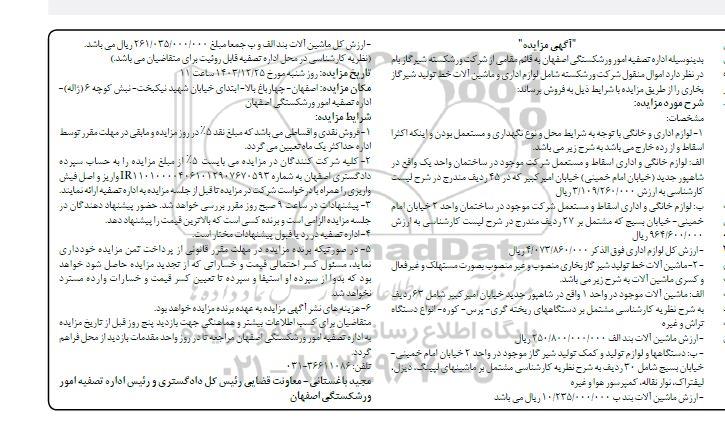 "آگهی مزایده"
بدینوسیله اداره تصفیه امور ورشکستگی اصفهان به قائم مقامی از شرکت ورشکسته شیر گاز بام
در نظر دارد اموال منقول شرکت ورشکسته شامل لوازم اداری و ماشین آلات خط تولید شیر گاز
بخاری را از طریق مزایده با شرایط ذیل به فروش برساند:
شرح مورد مزایده:
مشخصات:
۱-لوازم اداری و خانگی با توجه به شرایط محل و نوع نگهداری و مستعمل بودن و اینکه اکثرا
اسقاط و از رده خارج می باشد به شرح زیر می باشد.
الف: لوازم خانگی و اداری اسقاط و مستعمل شرکت موجود در ساختمان واحد یک واقع در
شاهپور جدید (خیابان امام خمینی) خیابان امیر کبیر که در ۴۵ ردیف مندرج در شرح لیست
کارشناسی به ارزش ۳/۱۰۹/۲۶۰/۰۰۰ ریال
ب: لوازم خانگی و اداری اسقاط و مستعمل شرکت موجود در ساختمان واحد ۲ خیابان امام
خمینی- خیابان بسیج که مشتمل بر ۲۷ ردیف مندرج در شرح لیست کارشناسی به ارزش
۹۶۴/۶۰۰/۰۰۰ ریال
-ارزش کل لوازم اداری فوق الذکر ۴/۰۷۳/۸۶۰/۰۰۰ ریال
-۲-ماشین آلات خط تولید شیر گاز بخاری منصوب و غیر منصوب بصورت مستهلک و غیر فعال
و کسری ماشین آلات به شرح زیر می باشد.
الف: ماشین آلات موجود در واحد ۱ واقع در شاهپور جدید خیابان امیر کبیر شامل ۶۳ ردیف
به شرح نظریه کارشناسی مشتمل بر دستگاههای ریخته گری- پرس- کوره- انواع دستگاه
تراش و غیره
-ارزش ماشین آلات بند الف ۲۵۰/۸۰۰/۰۰۰/۰۰۰ ریال
-ب: دستگاهها و لوازم تولید و کمک تولید شیر گاز موجود در واحد ۲ خیابان امام خمینی-
خیابان بسیج شامل ۳۰ ردیف به شرح نظریه کارشناسی مشتمل بر ماشینهای لپینگ، دیزل،
لیفتراک، نوار نقاله، کمپرسور هوا و غیره
-ارزش ماشین آلات بند ب ۱۰/۲۳۵/۰۰۰/۰۰۰ ریال می باشد
-ارزش کل ماشین آلات بند الف و ب جمعا مبلغ ۲۶۱/۰۳۵/۰۰۰/۰۰۰ ریال می باشد.
(نظریه کارشناسی در محل اداره تصفیه قابل روئیت برای متقاضیان می باشد.)
تاریخ مزایده: روز شنبه مورخ ۱۴۰۳/۱۲/۲۵ ساعت ۱۱
مکان مزایده: اصفهان-چهارباغ بالا-ابتدای خیابان شهید نیکبخت- نبش کوچه ۶ (ژاله)-
اداره تصفیه امور ورشکستگی اصفهان
شرایط مزایده:
۱-فروش نقدی و اقساطی می باشد که مبلغ نقد ۵٪ در روز مزایده و مابقی در مهلت مقرر توسط
اداره حداکثر یک ماه تعیین می گردد.
۲-کلیه شرکت کنندگان در مزایده می بایست ۵٪ از مبلغ مزایده را به حساب سپرده
دادگستری اصفهان به شماره IR۱۱۰۱۰۰۰۰۴۰۶۱۰۱۲۹۰۷۶۷۰۵۹۳ واریز و اصل فیش
واریزی را همراه با درخواست شرکت در مزایده تا قبل از جلسه مزایده به اداره تصفیه ارائه نمایند.
۳- پیشنهادات در ساعت ۹ صبح روز مقرر بررسی خواهد شد. حضور پیشنهاد دهندگان در
جلسه مزایده الزامی است و برنده کسی است که بالاترین قیمت را پیشنهاد دهد.
۴-اداره تصفیه در رد یا قبول پیشنهادات مختار است.
۵- در صورتیکه برنده مزایده در مهلت مقرر قانونی از پرداخت ثمن مزایده خودداری
نماید، مسئول کسر احتمالی قیمت و خساراتی که از تجدید مزایده حاصل شود خواهد
بود که بدوا از سپرده او استیفا و سپرده تا تعیین کسر قیمت و خسارات وارده مسترد
نخواهد شد.
۶-هزینه های نشر آگهی مزایده به عهده برنده مزایده خواهد بود.
متقاضیان برای کسب اطلاعات بیشتر و هماهنگی جهت بازدید پنج روز قبل از تاریخ مزایده
به اداره تصفیه امور ورشکستگی اصفهان مراجعه تا در روز واحد مقدمات بازدید از محل فراهم
گردد.
تلفن: ۰۳۱-۳۶۶۱۱۰۸۶
مجید باغستانی- معاونت قضایی رئیس کل دادگستری و رئیس اداره تصفیه امور
ورشکستگی اصفهان